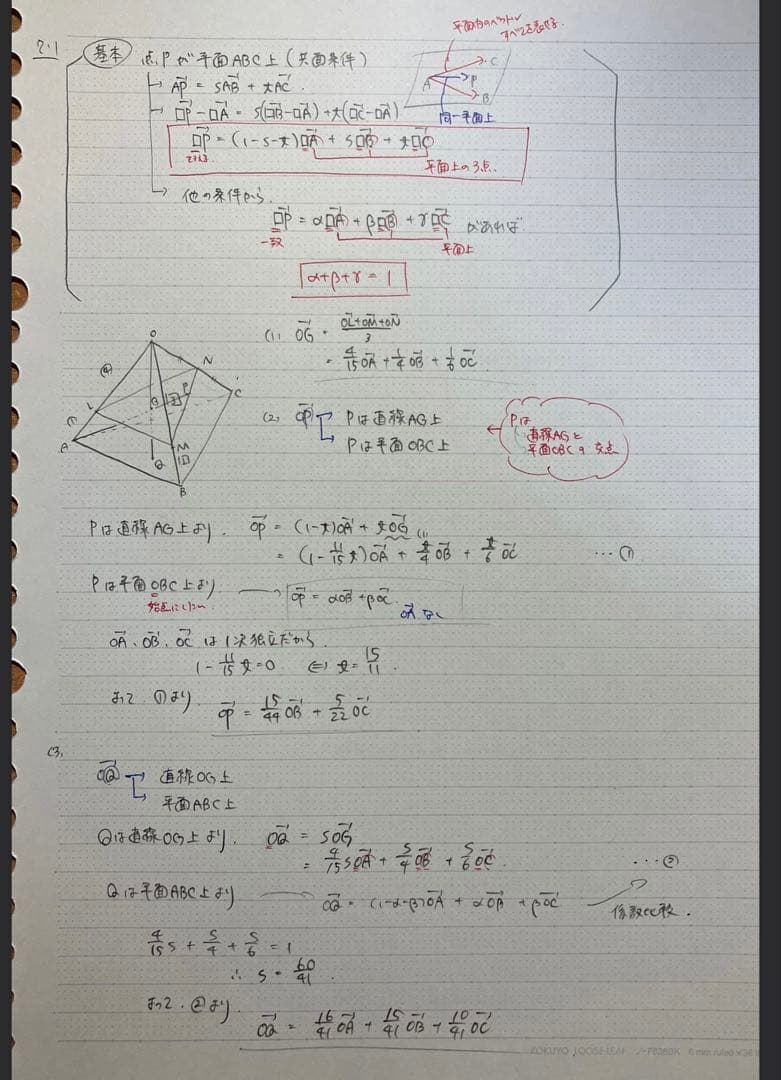 21
基本 点Pが平面ABC上(共面条件)
平面内のベクトルすべて2コで表せる.
→ AP = sAB + tAC.
A C P B
同一平面上
→ □P - □A = s(□B - □A) + t(□C - □A)
□P = (1-s-t)□A + s□B + t□C
平面上の3点.
→ 他の条件から.
□P = α□A + β□B + γ□C があれば
一致
平面上
α+β+γ = 1
O N C L P G A M Q B
④ ① ② ①
(1) OG = (OL+OM+ON)/3
= 4/15 OA + 1/4 OB + 1/6 OC
(2) OP → Pは直線AG上
→ Pは平面OBC上
Pは直線AGと平面OBCの交点
Pは直線AG上より. OP = (1-t)OA + tOG (1)
= (1 - 11/15 t)OA + t/4 OB + t/6 OC …①
Pは平面OBC上より → OP = αOB + βOC.
始点にしたい
OAなし
OA、OB、OCは1次独立だから.
1 - 11/15 t = 0 ⇔ t = 15/11.
よって. ①より. OP = 15/44 OB + 5/22 OC
(3)
OQ → 直線OG上
→ 平面ABC上
Qは直線OG上より. OQ = sOG
= 4/15 sOA + s/4 OB + s/6 OC. …②
Qは平面ABC上より OQ = (1-α-β)OA + αOB + βOC
係数比較.
4/15 s + s/4 + s/6 = 1
∴ s = 60/41.
よって. ②より.
OQ = 16/41 OA + 15/41 OB + 10/41 OC
KOKUYO LOOSE-LEAF
6 mm ruled × 36 li